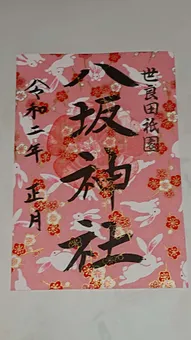 世良田祇園
八坂神社
令和二年 正月